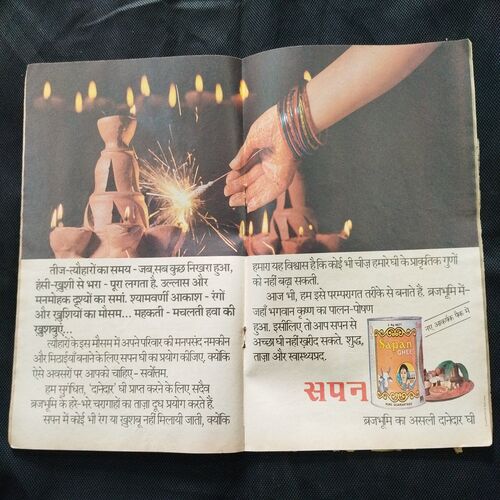 तीज-त्यौहारों का समय - जब, सब कुछ निखरा हुआ,
हंसी-खुशी से भरा - पूरा लगता है. उल्लास और
मनमोहक दृश्यों का समां. श्यामवर्णी आकाश - रंगों
और खुशियों का मौसम... महकती - मचलती हवा की
खुशबुएं...
त्यौहारों के इस मौसम में अपने परिवार की मनपसंद नमकीन
और मिठाइयाँ बनाने के लिए सपन घी का प्रयोग कीजिए, क्योंकि
ऐसे अवसरों पर आपको चाहिए - सर्वोत्तम.
हम सुगंधित, 'दानेदार' घी प्राप्त करने के लिए सदैव
ब्रजभूमि के हरे-भरे चरागाहों का ताज़ा दूध प्रयोग करते हैं.
सपन में कोई भी रंग या खुशबू नहीं मिलायी जाती, क्योंकि
हमारा यह विश्वास है कि कोई भी चीज़ हमारे घी के प्राकृतिक गुणों
को नहीं बढ़ा सकती.
आज भी, हम इसे परम्परागत तरीके से बनाते हैं. ब्रजभूमि में-
जहाँ भगवान कृष्ण का पालन-पोषण
हुआ. इसीलिए तो आप सपन से
अच्छा घी नहीं ख़रीद सकते. शुद्ध,
ताज़ा और स्वास्थ्यप्रद.
नए आकर्षक पैक में
Sapan
GHEE
सपन
ब्रजभूमि का असली दानेदार घी